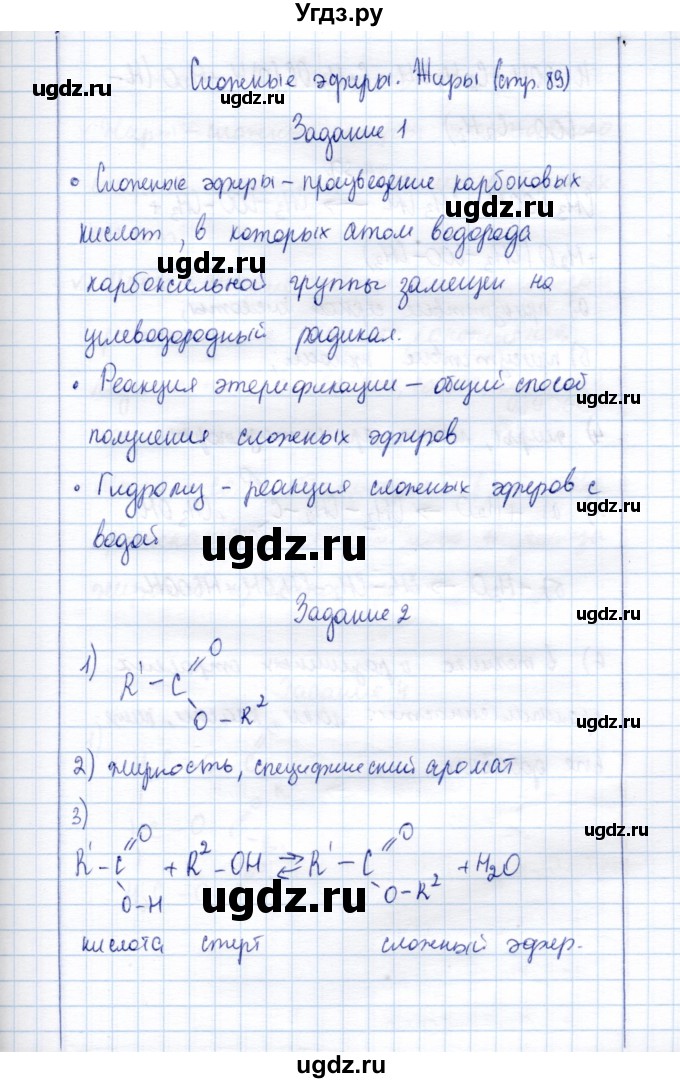 Угдз.ру
Сложные эфиры. Жиры (стр. 89)
Задание 1
• Сложные эфиры – произведение карбоновых
кислот, в которых атом водорода
карбоксильной группы замещен на
углеводородный радикал.
• Реакция этерификации – общий способ
получения сложных эфиров
• Гидролиз – реакция сложных эфиров с
водой
Задание 2
1) R' – C
O
O – R²
2) жирность, специфический аромат
3)
R' – C
O
O – H
+ R² – OH ⇄ R' – C
O
O – R²
+ H₂O
кислота спирт сложный эфир.
ugdz.ru
ugdz.ru
ugdz.ru
ugdz.ru
ugdz.ru
ugdz.ru
ugdz.ru
ugdz.ru
ugdz.ru
ugdz.ru
ugdz.ru
ugdz.ru
ugdz.ru
ugdz.ru